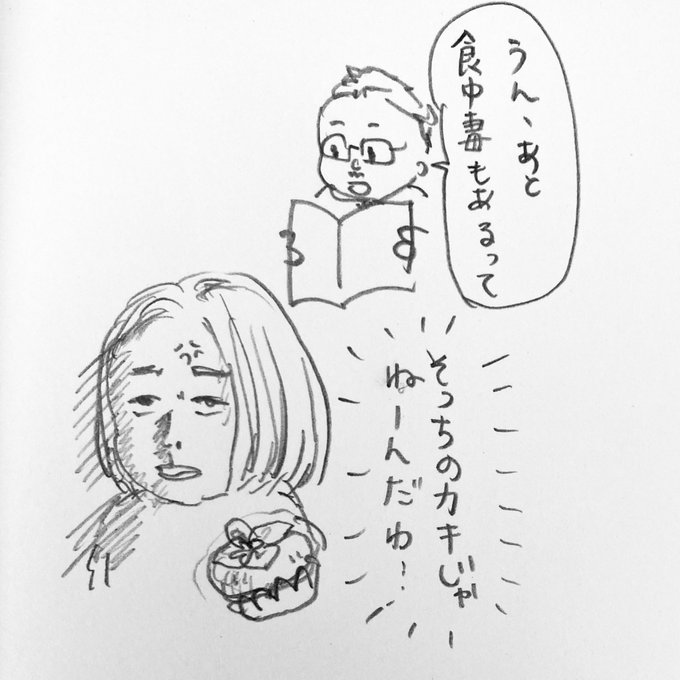 うん、あと
食中毒もあるって
そっちのカキじゃ
ねーんだわ!